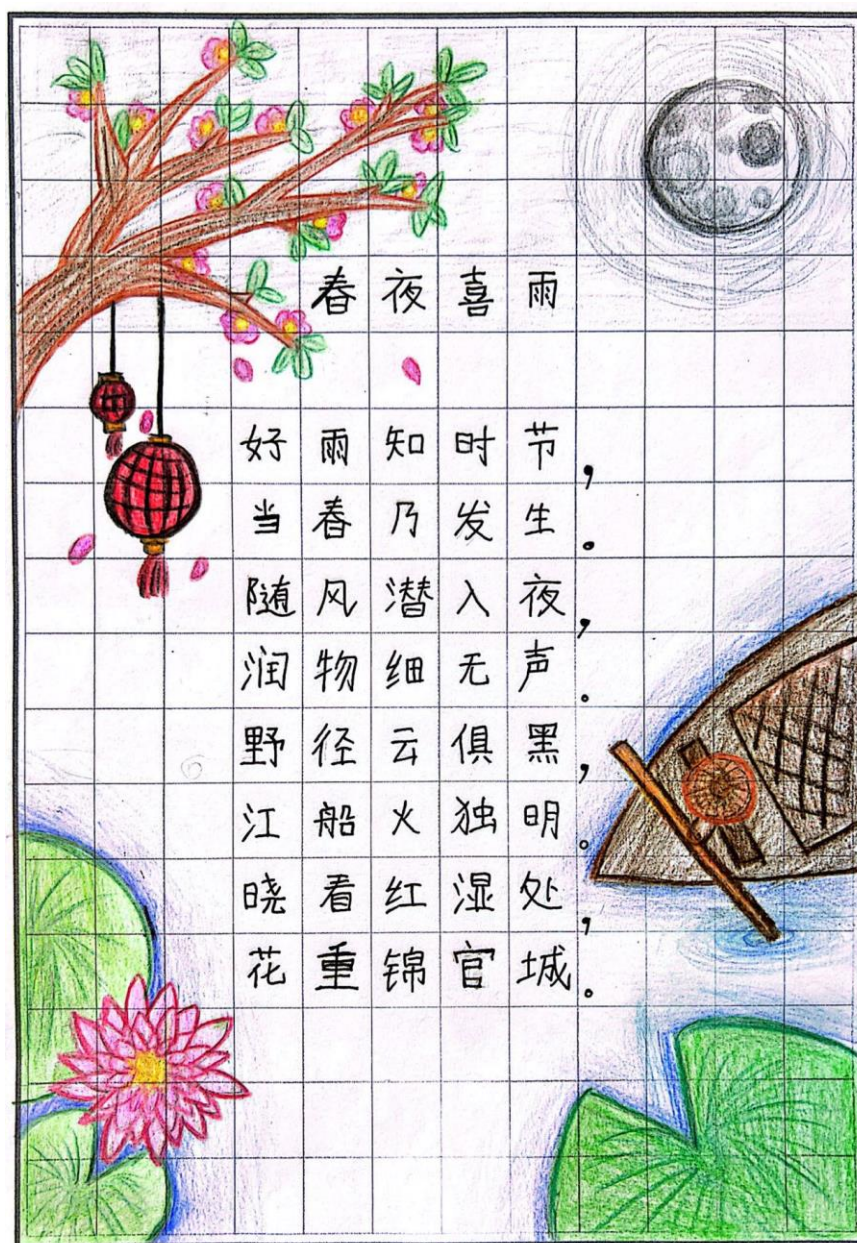 春夜喜雨
好雨知时节，
当春乃发生。
随风潜入夜，
润物细无声。
野径云俱黑，
江船火独明。
晓看红湿处，
花重锦官城。